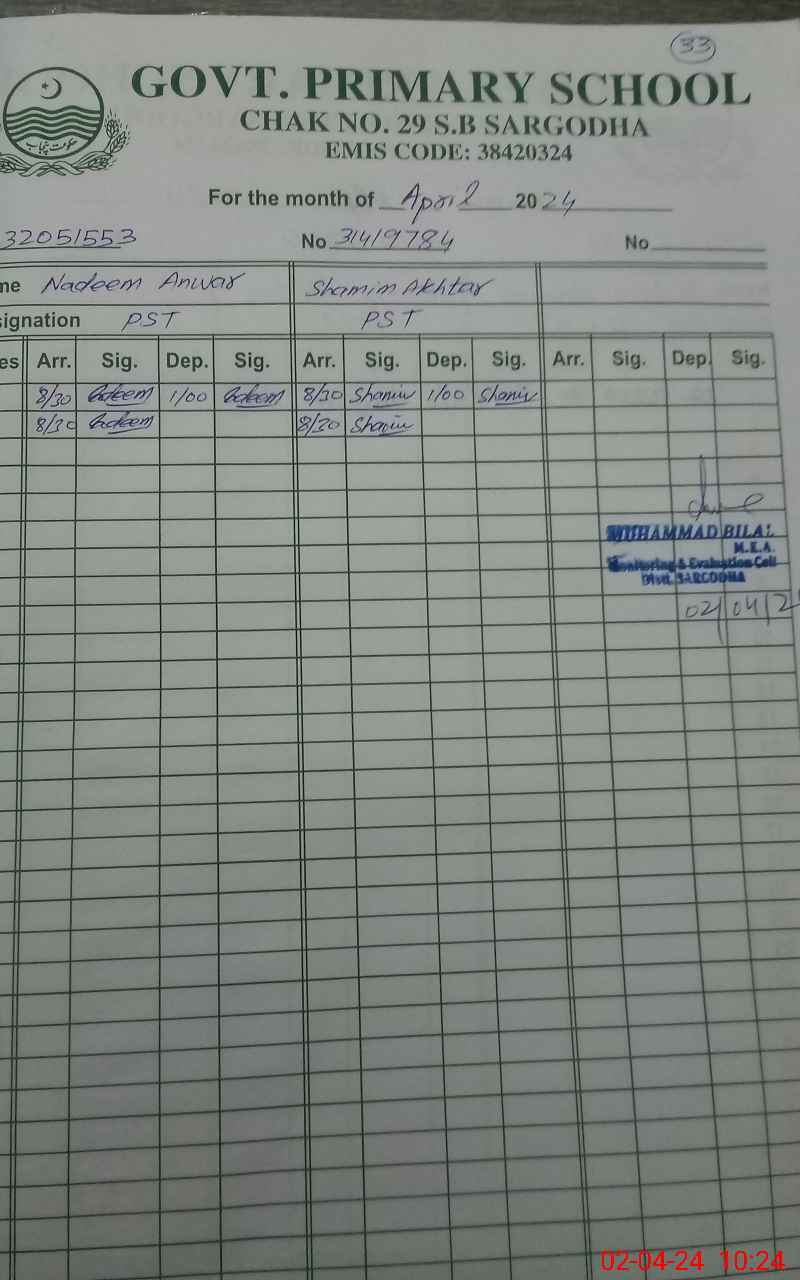 33
GOVT. PRIMARY SCHOOL
CHAK NO. 29 S.B SARGODHA
EMIS CODE: 38420324
حکومت پنجاب
For the month of April 2024
32051553 No 31419784 No
me Nadeem Anwar Shamim Akhtar
signation PST PST
es Arr. Sig. Dep. Sig. Arr. Sig. Dep. Sig. Arr. Sig. Dep. Sig.
8/30 Nadeem 1/00 Nadeem 8/30 Shamim 1/00 Shamim
8/30 Nadeem 8/30 Shamim
MUHAMMAD BILAL
M.E.A.
Monitoring & Evaluation Cell
Distt. SARGODHA
02/04/2
02-04-24 10:24